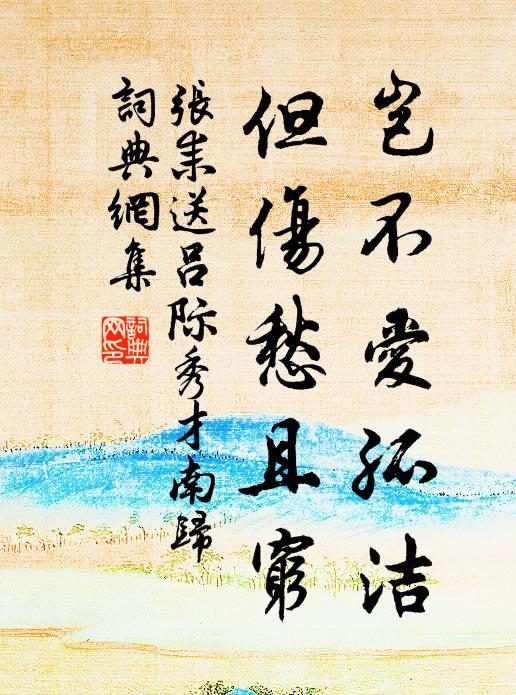 豈不愛孤洁
但傷愁且窮
張耒送吕际秀才南歸
詞典網集
詞典
网印